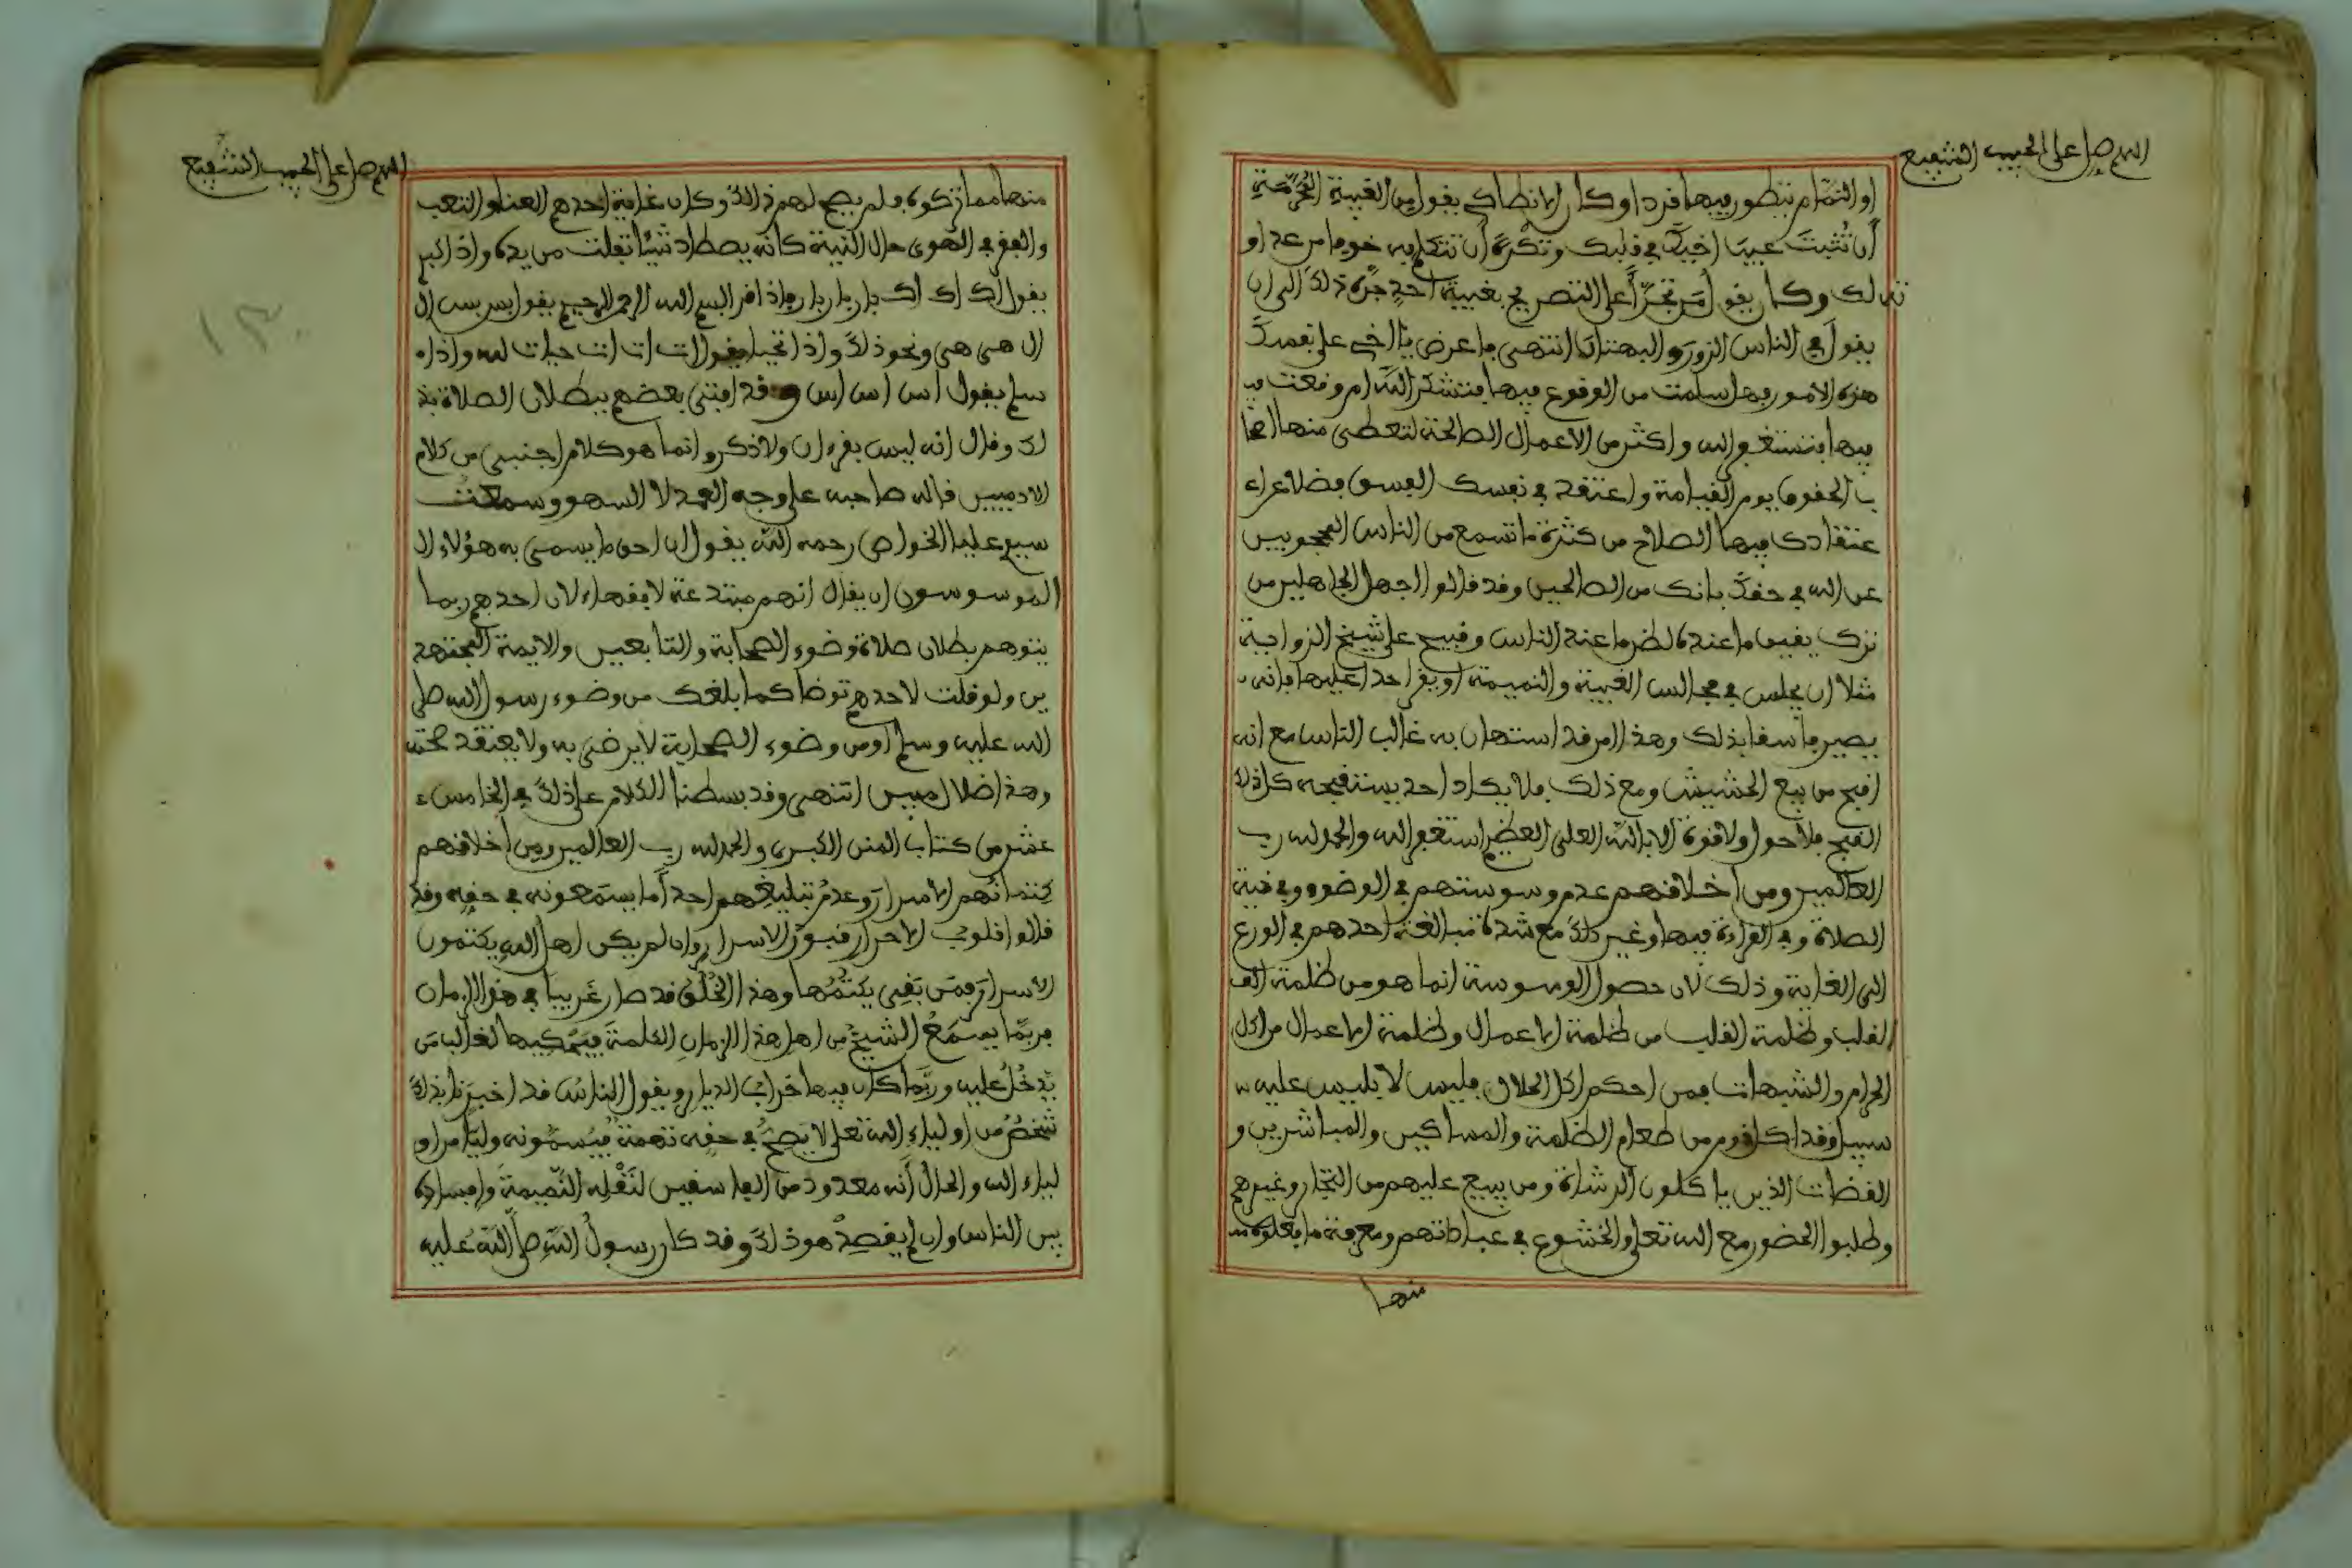 اللهم صل على الحبيب الشفيع
او النمام يتطور فيها فردا وكان الانطاكي يقول من الغيبة المحرمة
أن تُثبتَ عيبَ اخيك في قلبك وتكْرهُ أن تتكلم به خوفا من عداو
ته لك وكان يقول مَن تجرّأ على التصريح بغيبة احدٍ جرّه ذلك الى ان
يقول في الناس الزور والبهتان انتهى فاعرض يا اخي على نفسك
هذه الامور فهل سلمت من الوقوع فيها فتشكر اللّه ام وقعت فيـ
فيها فتستغفر الله واكثر من الاعمال الصالحة لتعطي منها اصحا
ب الحقوق يوم القيامة واعتقد في نفسك الفسق فضلا عن ا
عتقادك فيها الصلاح من كثرة ما تسمع من الناس المحجوبين
عن الله في حقك بانك من الصالحين وقد قالوا اجهل الجاهلين من
ترك يقين ما عنده لظن ما عند الناس وقبيح على شيخ الزواية
مثلا ان يجلس في مجالس الغيبة والنميمة او يقر احدا عليها فانه
يصير فاسقا بذلك وهذا امر قد استهان به غالب الناس مع انه
اقبح من بيع الحشيش ومع ذلك فلا يكاد احد يستقبحه كل ذلك
القبح فلا حول ولا قوة الا باللّه العلي العظيم استغفر الله والحمد لله رب
العالمين ومن اخلاقهم عدم وسوستهم في الوضوء وفي نية
الصلاة وفي القراءة فيها وغير ذلك مع شدة مبالغة احدهم في الورع
الى الغاية وذلك لان حصول الوسوسة انما هو من ظلمة القـ
القلب وظلمة القلب من ظلمة الاعمال وظلمة الاعمال من اكل
الحرام والشبهات فمن احكم اكل الحلال فليس لابليس عليه
سبيل وقد اكل قوم من طعام الظلمة والمساكين والمباشرين و
القضات الذين ياكلون الرشاة ومن يبيع عليهم من التجار وغيرهم
وطلبوا الحضور مع الله تعلى والخشوع في عباداتهم ومعرفة ما فعلوه
منها
اللهم صل على الحبيب الشفيع
١٣٠
منها مما تركوه فلم يصح لهم ذلك وكان غاية احدهم العنا والتعب
والقفز في الهوى حال النية كانه يصطاد شيئا تفلت من يده واذا كبر
يقول اك اك اك بار بار بار واذا قرا بسم الله الرحمن الرحيم يقول بس بس ال
ال هى هى ونحو ذلك واذا تحيا يقول ات ات ات حيات لله واذا
سلم يقول اس اس اس وقد افتى بعضهم ببطلان الصلاة بذ
لك وقال انه ليس بقرءان ولا ذكر وانما هو كلام اجنبي من كلام
الادميين قاله صاحبه على وجه العمد لا السهو وسمعت
سيدي عليا الخواص رحمه اللّه يقول ان احق ما يسمى به هؤلاء ال
الموسوسون ان يقال انهم مبتدعة لا فقهاء لان احدهم ربما
يتوهم بطلان صلاة وضوء الصحابة والتابعين والايمة المجتهد
ين ولو قلت لاحدهم توضا كما بلغك من وضوء رسول الله صلى
الله عليه وسلم او من وضوء الصحابة لا يرضى به ولا يعتقد صحته
وهذا ضلال مبين انتهى وقد بسطنا الكلام على ذلك في الخامس
عشر من كتاب المنن الكبرى والحمد لله رب العالمين ومن اخلاقهم
كتمانُهم الاسرارَ وعدمُ تبليغهم احداً ما يسمعونه في حقه وقد
قالوا قلوب الاحرار قبور الاسرار وان لم يكن اهل اللهِ يكتمون
الاسرارَ فمَن بَقِيَ يكتُمُها وهذا الخُلُق قد صار غريبا في هذا الزمان
فربّما يسمعُ الشيخُ من اهل هذا الزمانِ الكلمةَ فيَحكيها لغالب من
يَدخُل عليه وربّما كان فيها خراب الديار ويقول الناس قد اخبرنا بذلك
شخصٌ من اولياء الله تعلى لا يَصحُّ في حقه تهمة فيُسمُّونه وليّا من او
لياء الله والحال أنه معدود من الفاسقين لنَقْلِه النّميمة وافساده
بين الناس وان لم يقصِدْ هو ذلك وقد كان رسولُ اللّهِ صلى اللّهُ عليه